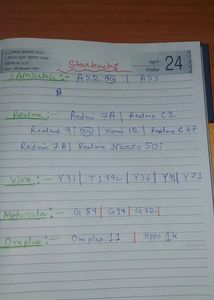 April
Friday
24
Starbucks
SAMSUNG:- A22 5G | A55
Realme:- Redmi 7A | Realme C2
Realme 9i 5G | Xaomi 12 | Realme C67
Redmi 7A | Realme Narzo 50i
Vivo:- Y91 | T1 44W | Y36 | Y91 | Y71
Motorola:- G 84 | G14 | G32
One plus:- One plus 11 | Oppo 1k